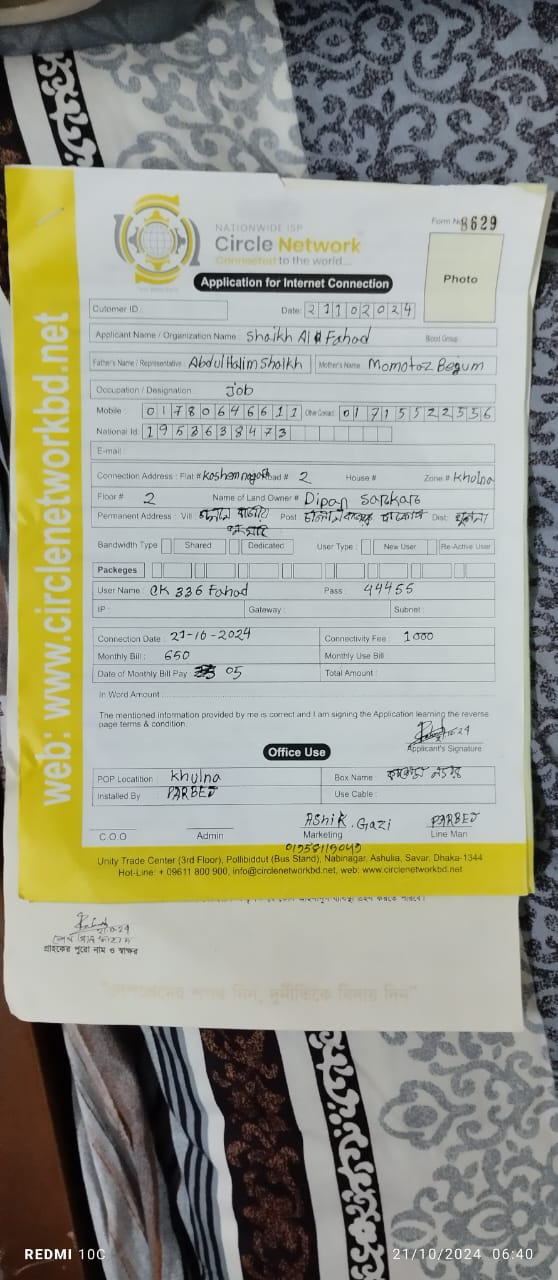 Form No 8629
NATIONWIDE ISP
Circle Network
Connected to the world....
Photo
Application for Internet Connection
Cutomer ID :
Date: 21102024
Applicant Name / Organization Name : Shaikh Al Fahad
Blood Group
Father's Name / Representative : Abdul Halim Shaikh Mother's Name Momotaz Begum
Occupation / Designation : job
Mobile 01780646611 Other Contact 01715522556
National Id: 1953638473
E-mail :
Connection Address : Flat # Road # 2 House # Zone # Khulna
Floor # 2 Name of Land Owner # Dipan Sarkar
Permanent Address : Vill Post Dist: খুলনা
Bandwidth Type Shared Dedicated User Type : New User Re-Active User
Packeges
User Name : CK 336 Fahad Pass : 44455
IP : Gateway : Subnet :
Connection Date : 21-10-2024 Connectivity Fee : 1000
Monthly Bill : 650 Monthly Use Bill :
Date of Monthly Bill Pay 05 Total Amount :
In Word Amount
The mentioned information provided by me is correct and I am signing the Application learning the reverse
page terms & condition.
Applicant's Signature
Office Use
POP Locatition : Khulna Box Name
Installed By PARBEJ Use Cable :
AShiK. Gazi PARBEJ
C.O.O Admin Marketing Line Man
Unity Trade Center (3rd Floor), Pollibiddut (Bus Stand), Nabinagar, Ashulia, Savar, Dhaka-1344
Hot-Line: + 09611 800 900, info@circlenetworkbd.net, web: www.circlenetworkbd.net
web: www.circlenetworkbd.net
গ্রাহকের পুরো নাম ও স্বাক্ষর
REDMI 10C
21/10/2024 06:40